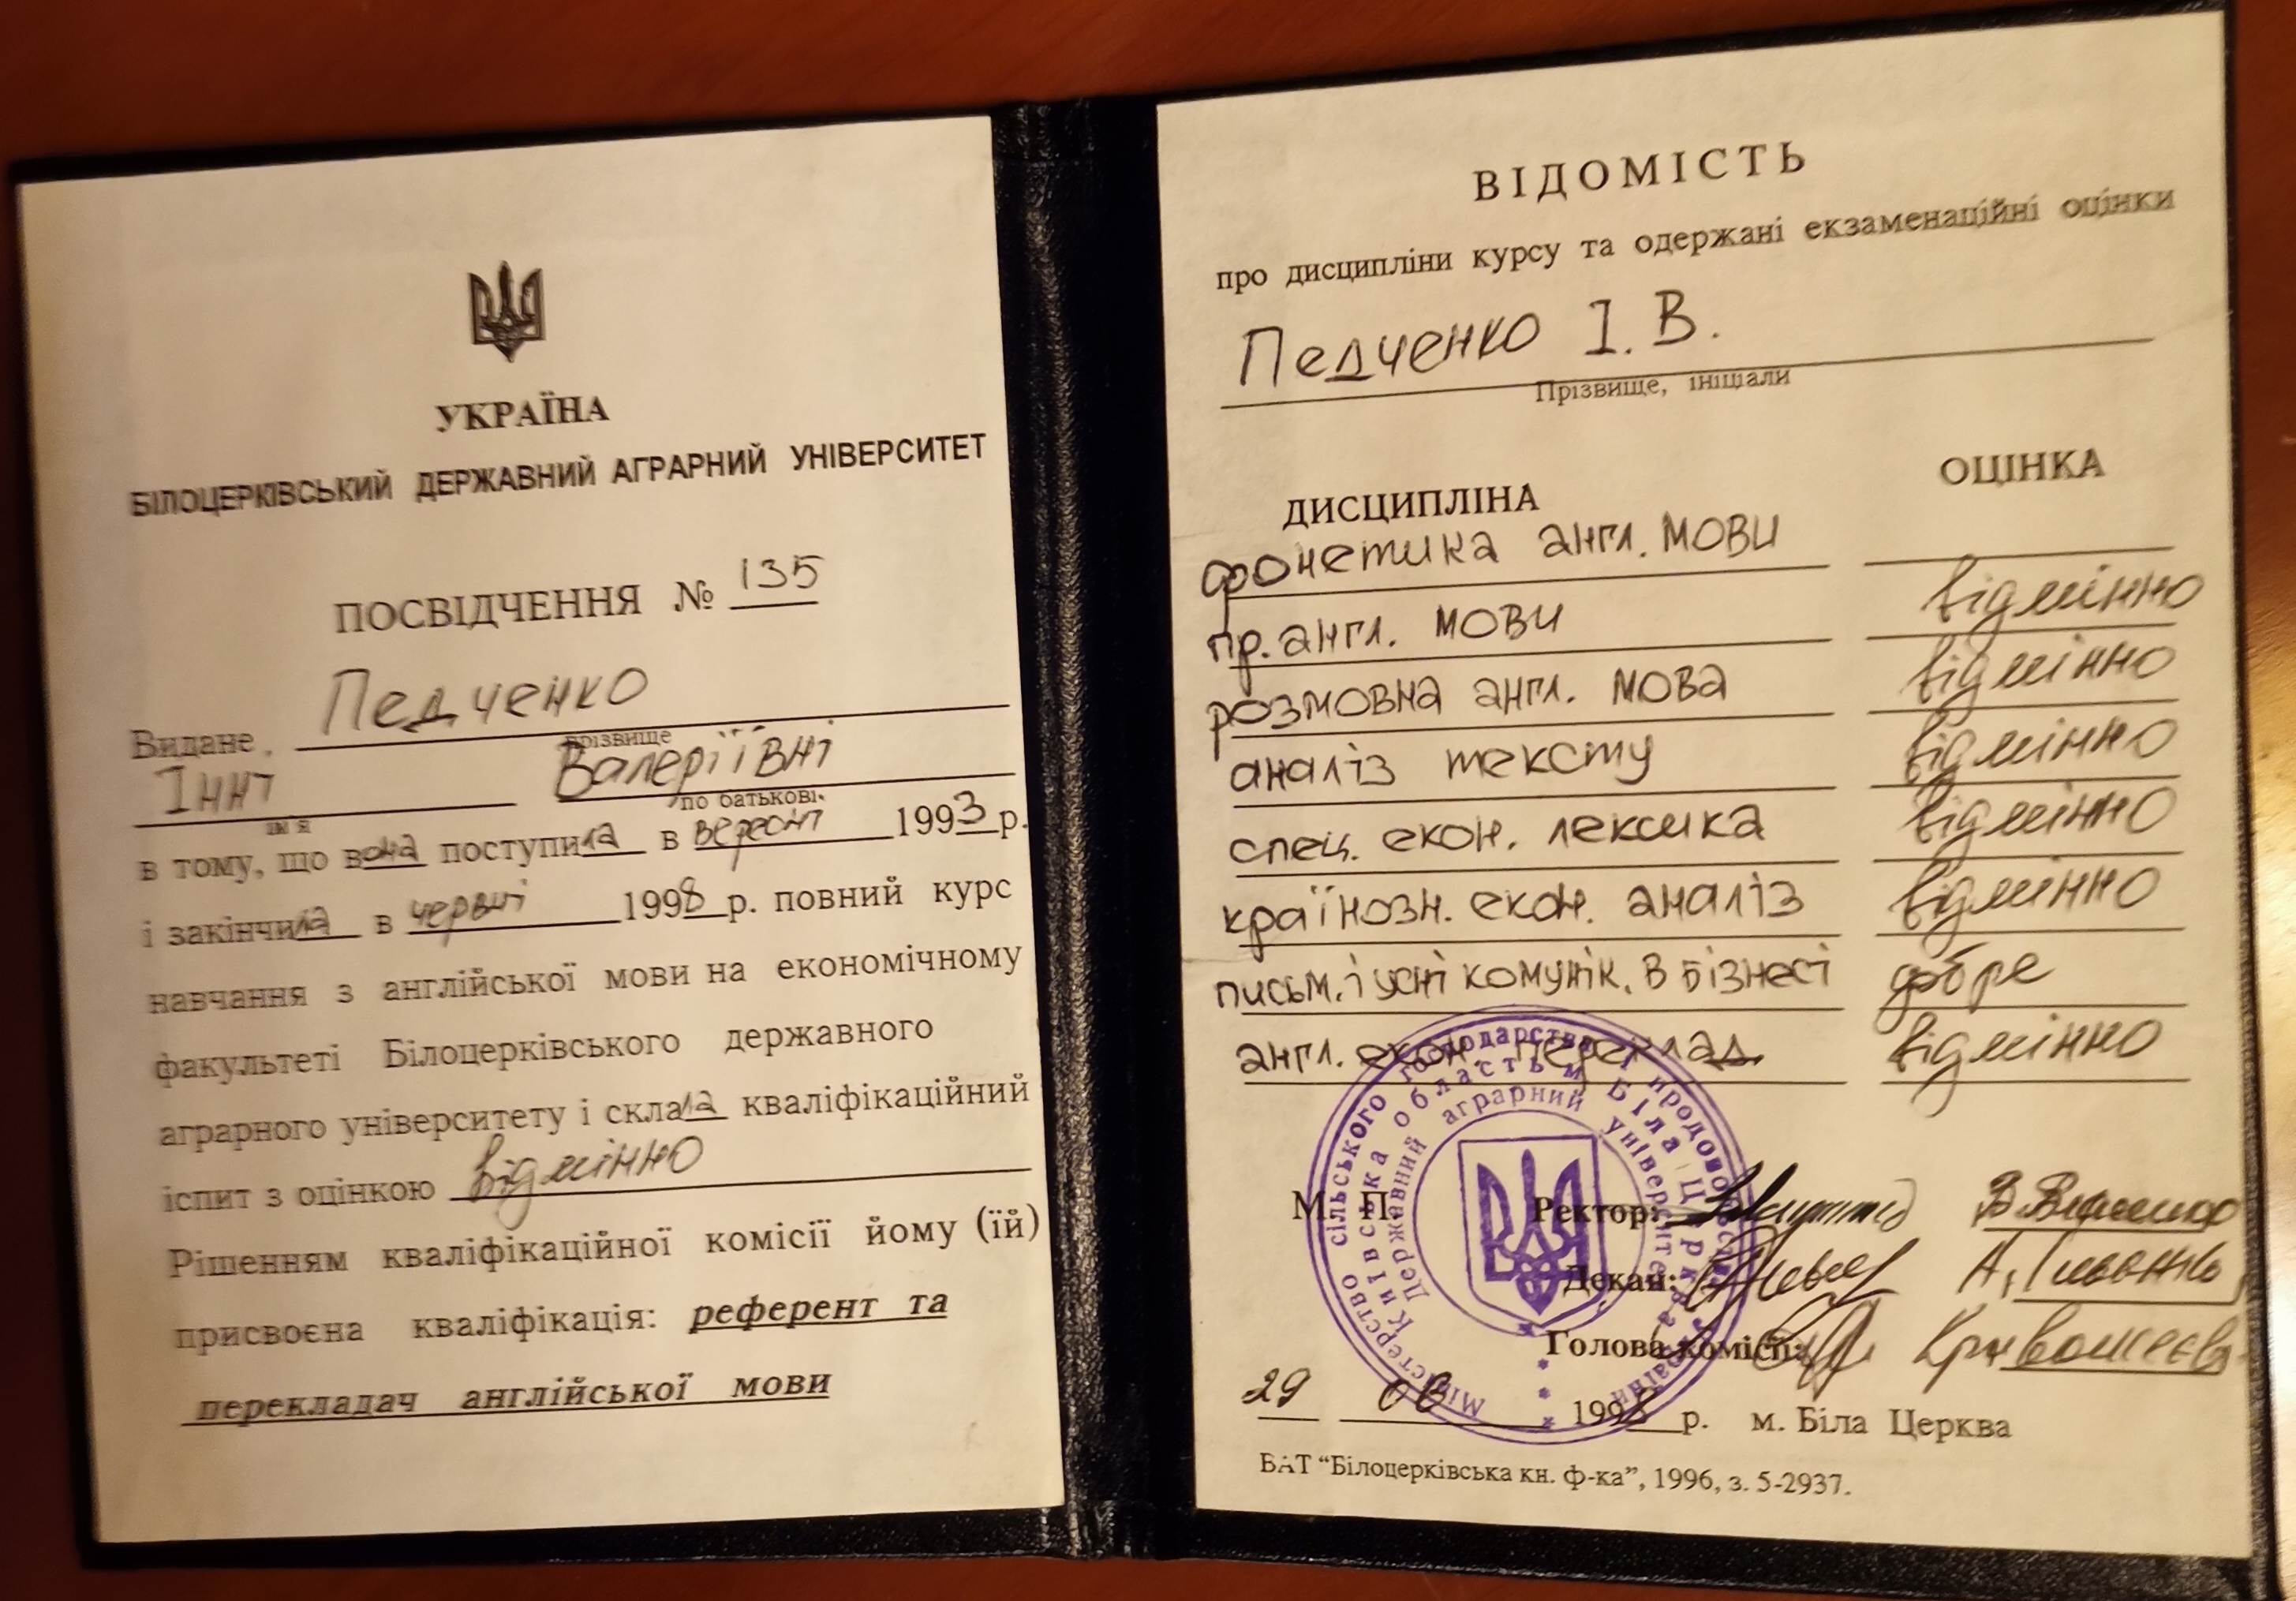 УКРАЇНА
БІЛОЦЕРКІВСЬКИЙ ДЕРЖАВНИЙ АГРАРНИЙ УНІВЕРСИТЕТ
ПОСВІДЧЕННЯ № 135
Видане Педченко
прізвище
Інні Валеріївні
ім'я по батькові
в тому, що вона поступила в вересні 1993 р.
і закінчила в червні 1998 р. повний курс
навчання з англійської мови на економічному
факультеті Білоцерківського державного
аграрного університету і склала кваліфікаційний
іспит з оцінкою відмінно
Рішенням кваліфікаційної комісії йому (їй)
присвоєна кваліфікація: референт та
перекладач англійської мови
ВІДОМІСТЬ
про дисципліни курсу та одержані екзаменаційні оцінки
Педченко І. В.
Прізвище, ініціали
ДИСЦИПЛІНА ОЦІНКА
фонетика англ. мови відмінно
пр. англ. мови відмінно
розмовна англ. мова відмінно
аналіз тексту відмінно
спец. екон. лексика відмінно
країнозн. екон. аналіз
письм. і усні комунік. в бізнесі добре
англ. екон. переклад відмінно
Міністерство сільського господарства і продовольства України
Київська область м Біла Церква
Державний аграрний університет
М. П. Ректор:
Декан:
Голова комісії:
29 06 1998 р. м. Біла Церква
ВАТ “Білоцерківська кн. ф-ка”, 1996, з. 5-2937.